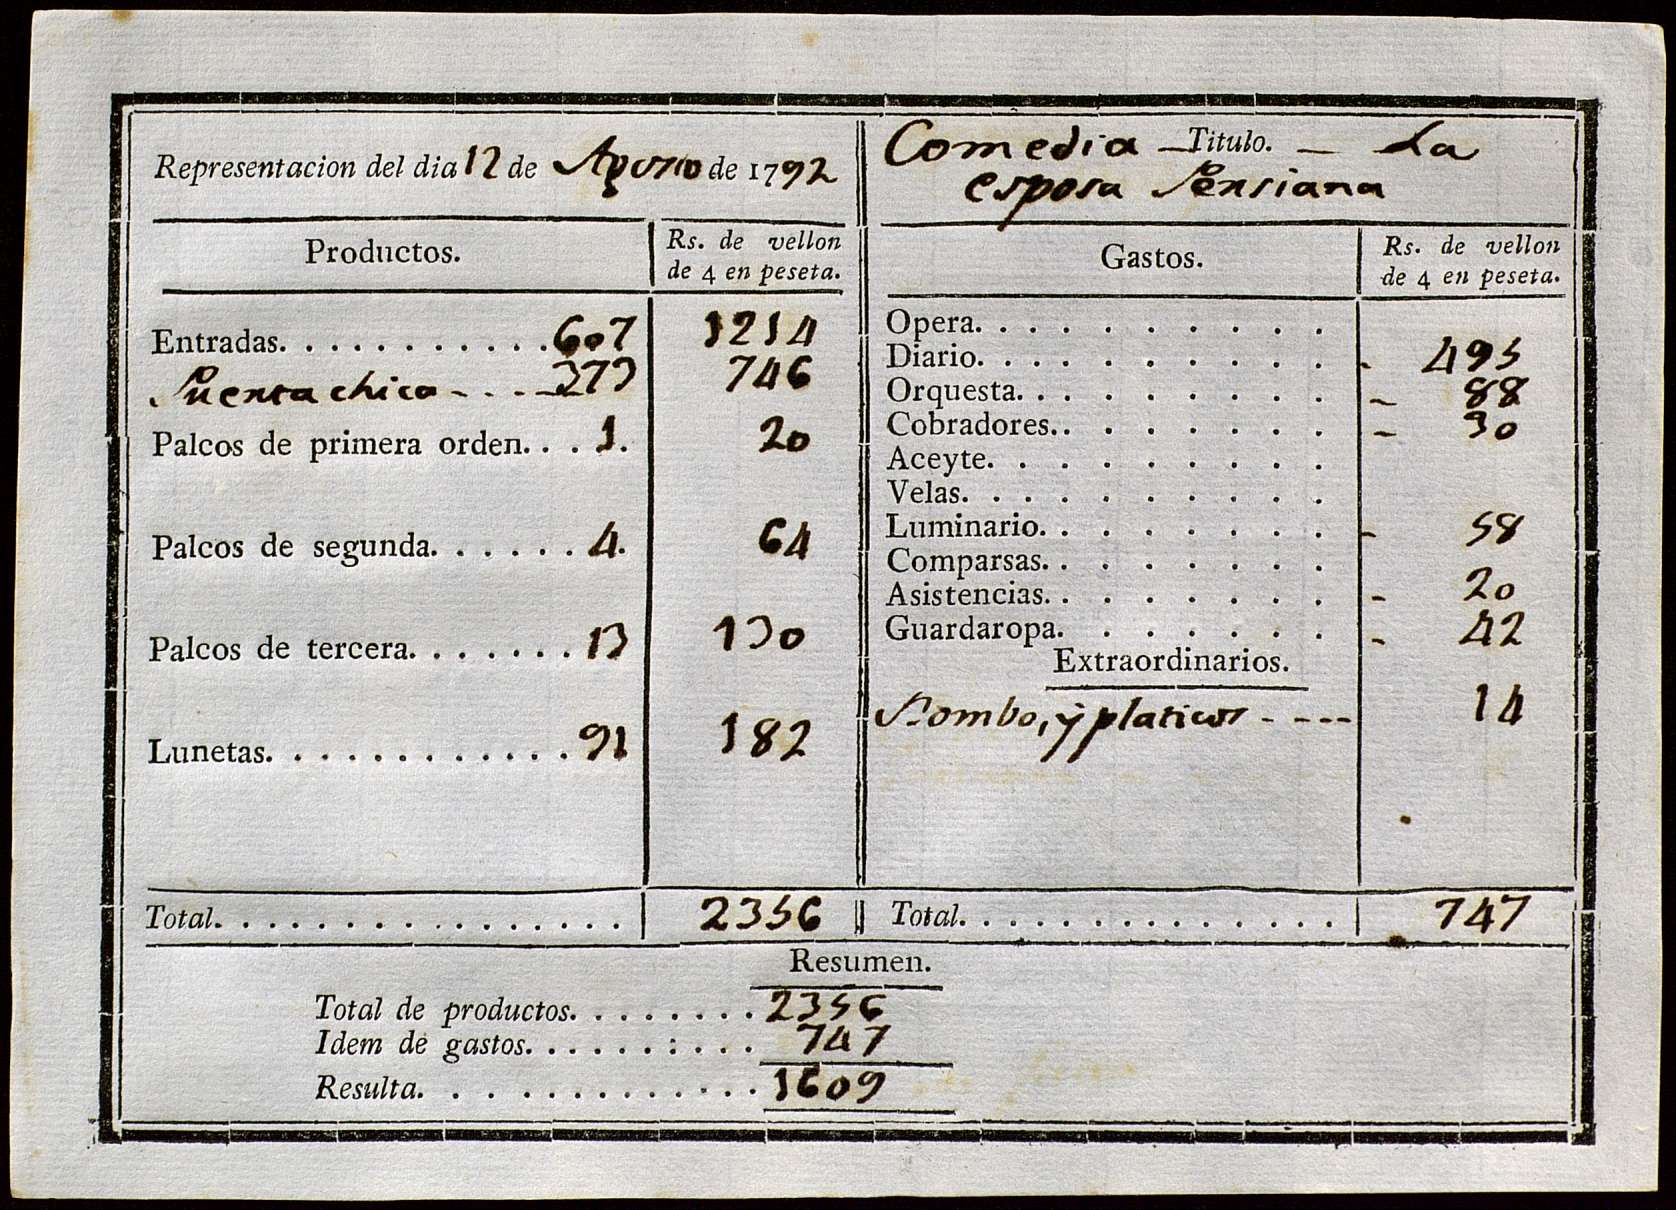 Representacion del dia 12 de Agosto de 1792
Productos.
Rs. de vellon
de 4 en peseta.
Entradas. . . . . . . . . . . 607 1214
Puerta chica - . . - 373 746
Palcos de primera orden. . . 1. 20
Palcos de segunda. . . . . . 4. 64
Palcos de tercera. . . . . . . 13 130
Lunetas. . . . . . . . . . . . 91 182
Total. . . . . . . . . . . . . . . . 2356
Comedia - Titulo. - La
esposa Persiana
Gastos.
Rs. de vellon
de 4 en peseta.
Opera. . . . . . . . . .
Diario. . . . . . . . . . 495
Orquesta. . . . . . . . . - 88
Cobradores. . . . . . . . - 30
Aceyte. . . . . . . . .
Velas. . . . . . . . . .
Luminario. . . . . . . . - 58
Comparsas. . . . . . . .
Asistencias. . . . . . . . - 20
Guardaropa. . . . . . . - 42
Extraordinarios.
Bombo, y platicos - - - - 14
Total. . . . . . . . . . . . . . 747
Resumen.
Total de productos. . . . . . . . 2356
Idem de gastos. . . . . . . . . . 747
Resulta. . . . . . . . . . . . . 1609